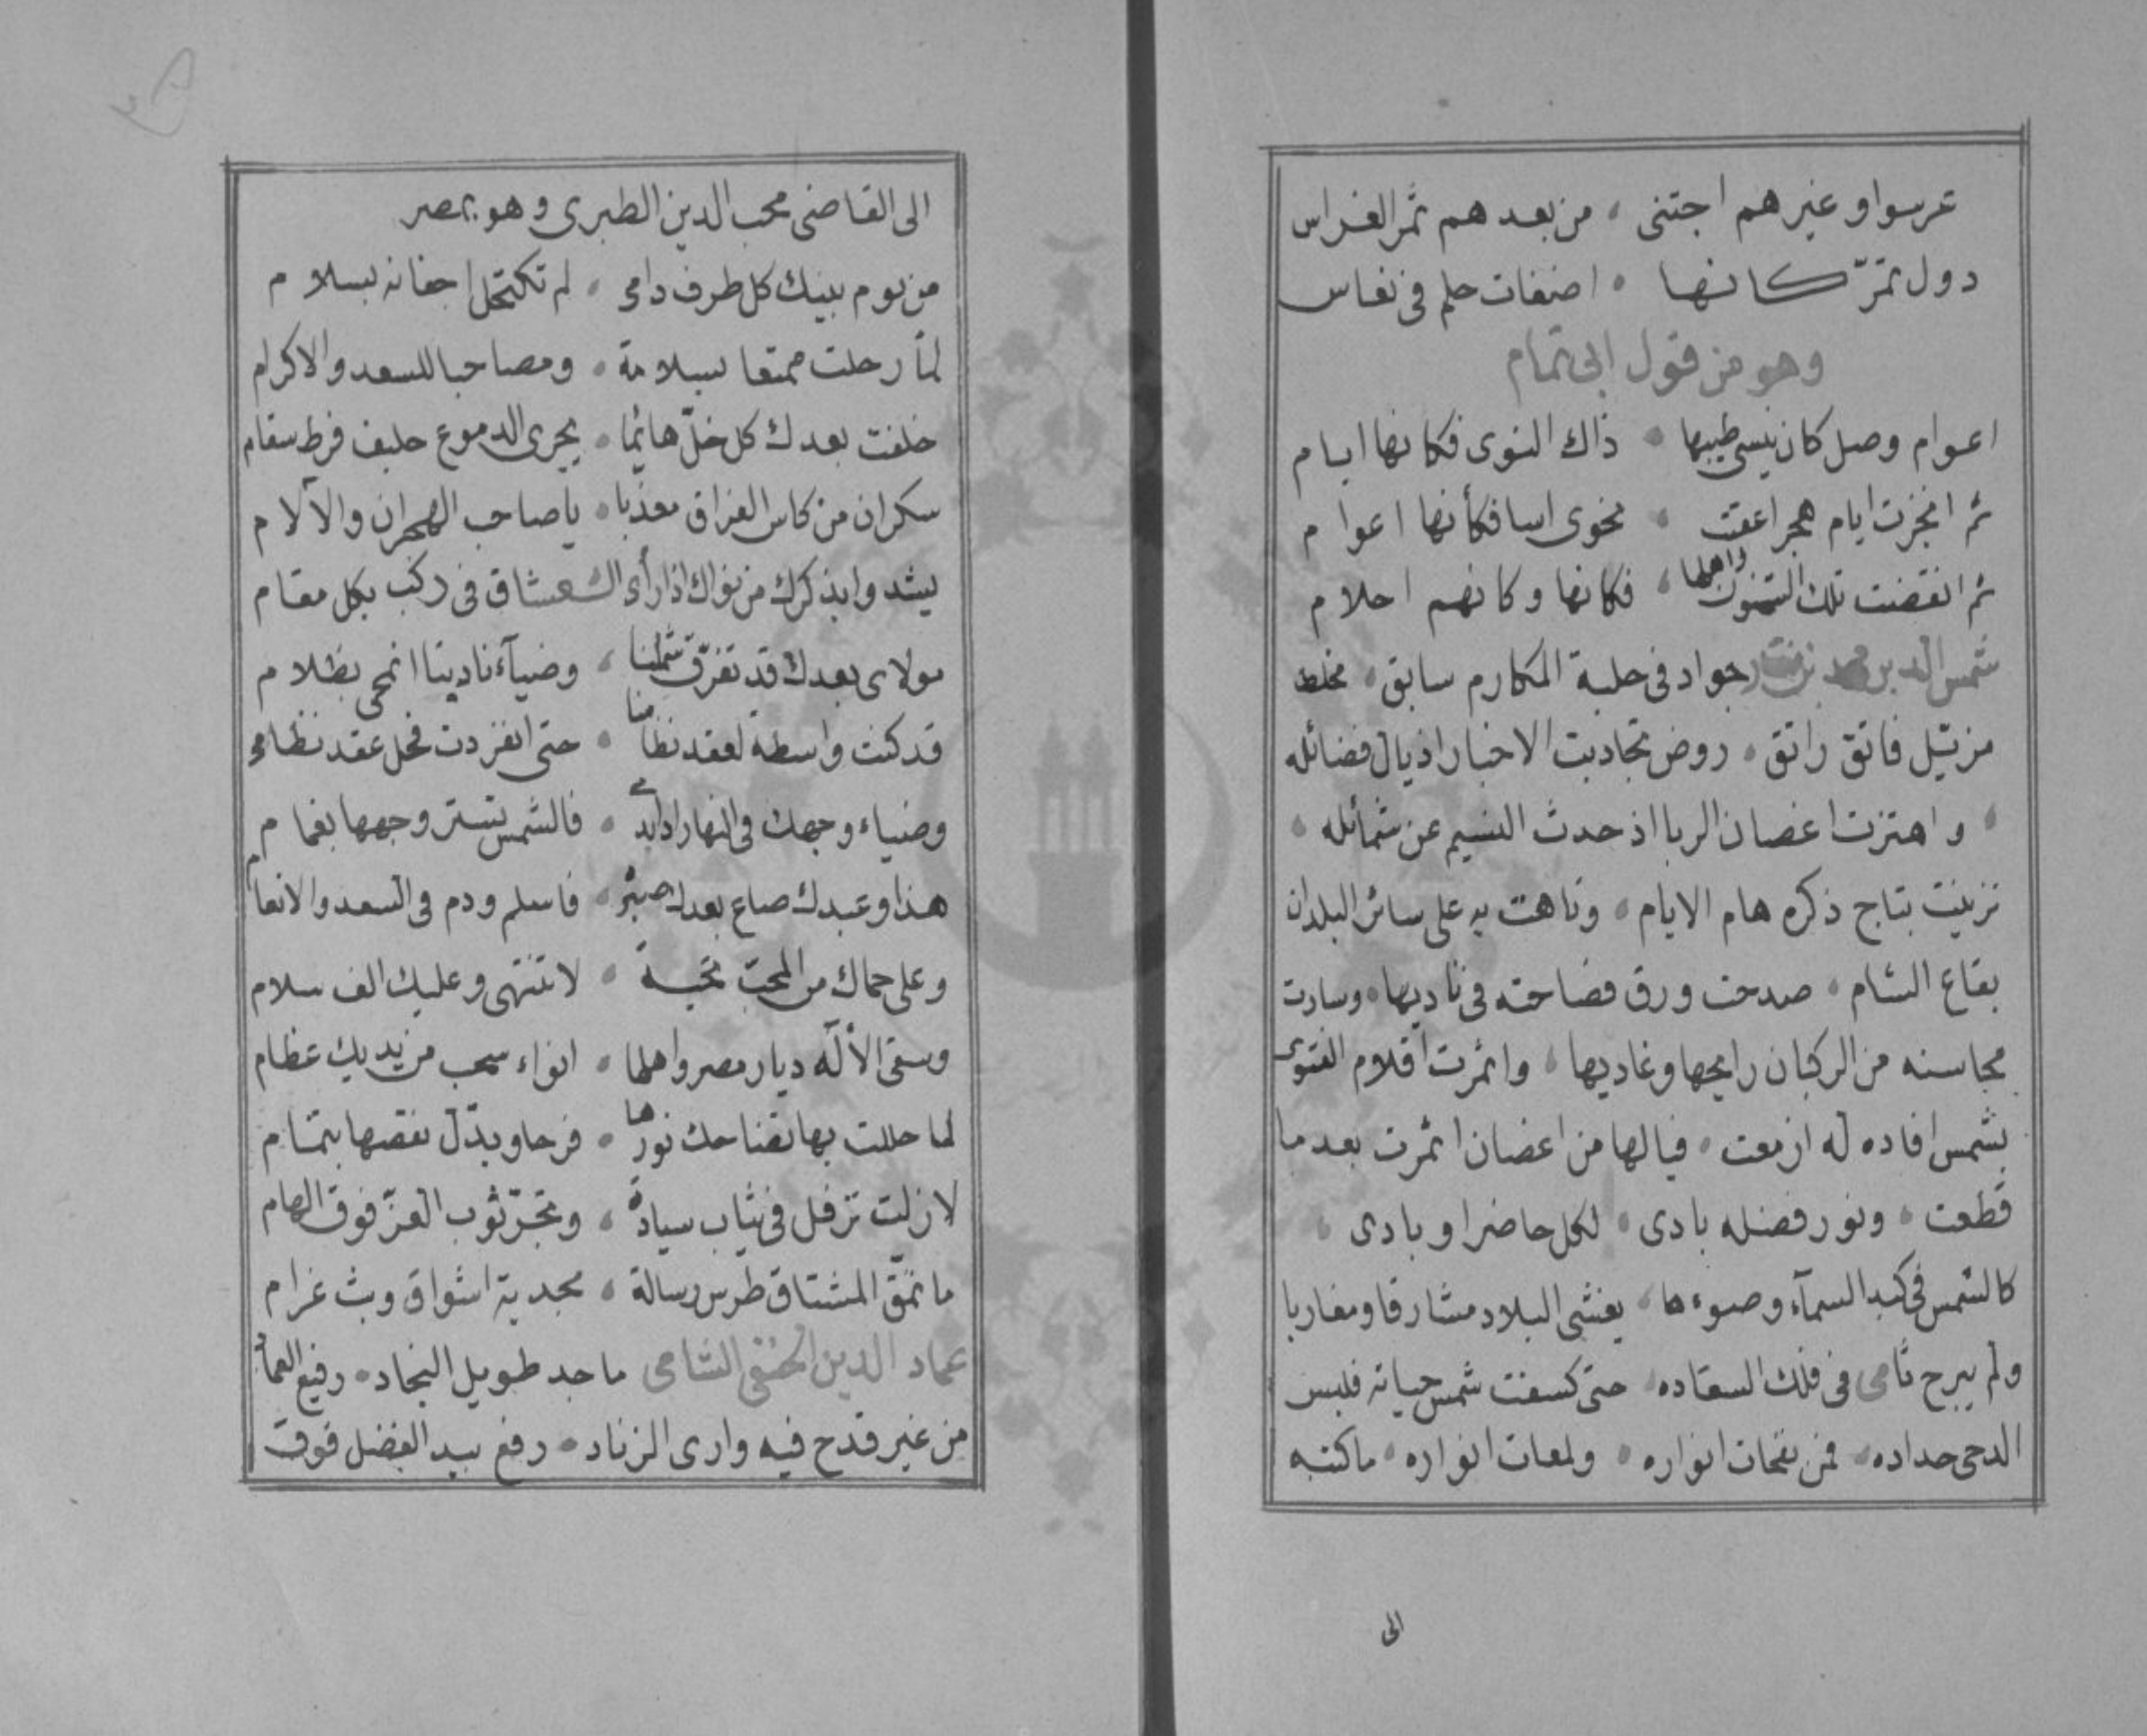 عرسوا وغيرهم اجتنى ، من بعدهم ثمر الغراس
دول تمرّ كانها ، اضغاث حلم فى نعاس
وهو من قول ابى تمام
اعوام وصل كان ينسى طيبها ، ذاك النوى فكانها ايام
ثم انجزت ايام هجر اعقبت ، نحوى اسا فكأنها اعوام
ثم انقضت تلك السنون واهلها ، فكانها وكانهم احلام
شمس الدين محمد جواد فى حلبة المكارم سابق ، مخلط
مزيل فاتق راتق ، روض تجاذبت الاخبار اذيال فضائله
، واهتزت اغصان الربا اذ حدث النسيم عن شمائله ،
تزينت بتاج ذكره هام الايام ، وتاهت به على سائر البلدان
بقاع الشام ، صدحت ورق فصاحته فى ناديها ، وسارت
بمحاسنه من الركبان رايحها وغاديها ، واثمرت اقلام الفتوى
بشمس افاده له ازمعت ، فيالها من اغصان اثمرت بعد ما
قطعت ، ونور فضله بادى ، لكل حاضر او بادى ،
كالشمس فى كبد السمآء وضوءها ، يغشى البلاد مشارقا ومغاربا
ولم يبرح ثامى فى فلك السعاده ، حتى كسفت شمس حياته فلبس
الدجى حداده ، فمن نفحات انواره ، ولمعات انواره ، ما كتبه
الى
الى القاضى محب الدين الطبرى وهو بمصر
من يوم بينك كل طرف دامى ، لم تكتحل اجفانه بسلام
لمّا رحلت ممتعا بسلامة ، ومصاحبا للسعد والاكرام
خلفت بعدك كل خلّ هائما ، يجرى الدموع حليف فرط سقام
سكران من كاس الفراق معذبا ، يا صاحب الهجران والآلام
يشدوا بذكرك من نواك اذا رأى العشاق فى ركب بكل مقام
مولاى بعدك قد تفرّق شملنا ، وضيآء نادينا انمحى بظلام
قد كنت واسطة لعقد نظامنا ، حتى انفردت فحل عقد نظامى
وضياء وجهك فى النهار اذا بدى ، فالشمس تستر وجهها بغمام
هذا وعبدك ضاع بعدك صبره ، فاسلم ودم فى السعد والانعام
وعلى حماك من المحبّ تحية ، لا تنتهى وعليك الف سلام
وسقى الأله ديار مصر واهلها ، انواء سحب من يديك عظام
لما حللت بها تضاحك نورها ، فرحا وبدّل نقصها بتمام
لا زلت ترفل فى ثياب سيادة ، وتجرّ ثوب العزّ فوق الهام
ما نمّق المشتاق طرس رسالة ، بجدية اشواق وبث غرام
عماد الدين الحنفى الشامى ماجد طويل النجاد ، رفيع العماد
من غير قدح فيه وارى الزناد ، رفع بيد الفضل فوق